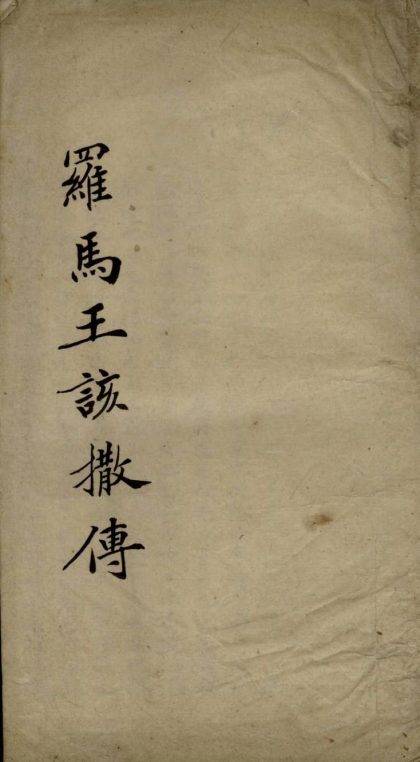 羅馬王該撒傳